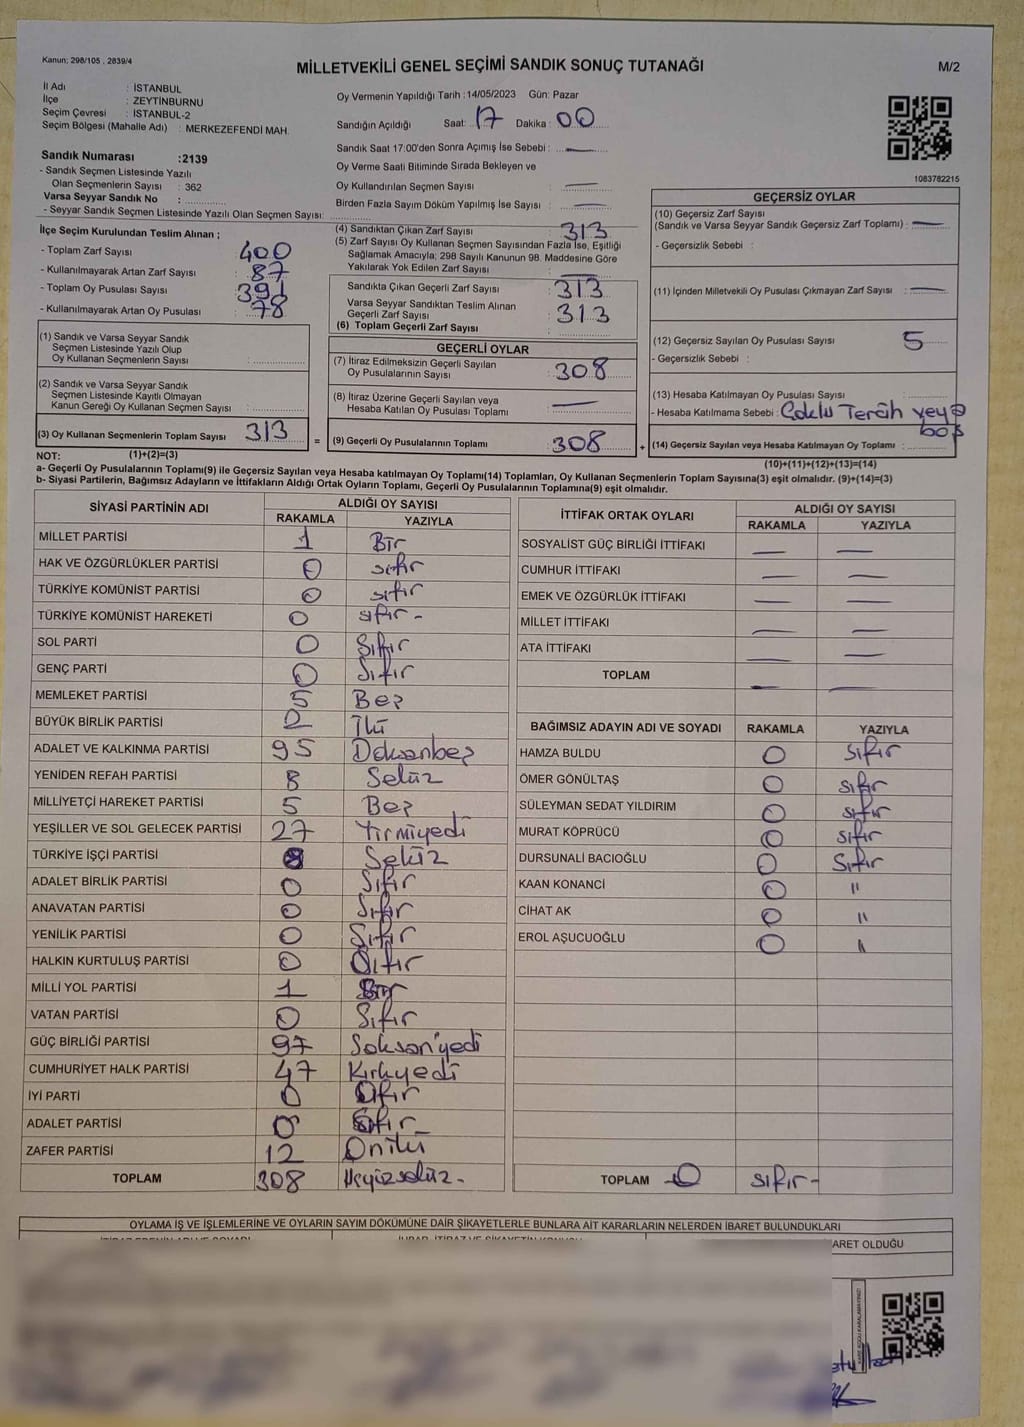 Kanun; 298/105 , 2839/4
MİLLETVEKİLİ GENEL SEÇİMİ SANDIK SONUÇ TUTANAĞI
M/2
İl Adı : İSTANBUL
İlçe : ZEYTİNBURNU
Seçim Çevresi : İSTANBUL-2
Seçim Bölgesi (Mahalle Adı) : MERKEZEFENDİ MAH.
Sandık Numarası :2139
- Sandık Seçmen Listesinde Yazılı
Olan Seçmenlerin Sayısı : 362
Varsa Seyyar Sandık No :
- Seyyar Sandık Seçmen Listesinde Yazılı Olan Seçmen Sayısı:
Oy Vermenin Yapıldığı Tarih :14/05/2023 Gün: Pazar
Sandığın Açıldığı Saat: 17 Dakika : 00
Sandık Saat 17:00'den Sonra Açımış İse Sebebi : —
Oy Verme Saati Bitiminde Sırada Bekleyen ve
Oy Kullandırılan Seçmen Sayısı : —
Birden Fazla Sayım Döküm Yapılmış İse Sayısı : —
1083782215
İlçe Seçim Kurulundan Teslim Alınan ;
- Toplam Zarf Sayısı : 400
- Kullanılmayarak Artan Zarf Sayısı : 87
- Toplam Oy Pusulası Sayısı : 391
- Kullanılmayarak Artan Oy Pusulası : 78
(1) Sandık ve Varsa Seyyar Sandık
Seçmen Listesinde Yazılı Olup
Oy Kullanan Seçmenlerin Sayısı :
(2) Sandık ve Varsa Seyyar Sandık
Seçmen Listesinde Kayıtlı Olmayan
Kanun Gereği Oy Kullanan Seçmen Sayısı :
(3) Oy Kullanan Seçmenlerin Toplam Sayısı 313
(4) Sandıktan Çıkan Zarf Sayısı : 313
(5) Zarf Sayısı Oy Kullanan Seçmen Sayısından Fazla İse, Eşitliği
Sağlamak Amacıyla; 298 Sayılı Kanunun 98. Maddesine Göre
Yakılarak Yok Edilen Zarf Sayısı : —
Sandıkta Çıkan Geçerli Zarf Sayısı : 313
Varsa Seyyar Sandıktan Teslim Alınan
Geçerli Zarf Sayısı : 313
(6) Toplam Geçerli Zarf Sayısı :
GEÇERLİ OYLAR
(7) İtiraz Edilmeksizin Geçerli Sayılan
Oy Pusulalarının Sayısı : 308
(8) İtiraz Üzerine Geçerli Sayılan veya
Hesaba Katılan Oy Pusulası Toplamı : —
= (9) Geçerli Oy Pusulalarının Toplamı : 308 +
GEÇERSİZ OYLAR
(10) Geçersiz Zarf Sayısı
(Sandık ve Varsa Seyyar Sandık Geçersiz Zarf Toplamı) : —
- Geçersizlik Sebebi :
(11) İçinden Milletvekili Oy Pusulası Çıkmayan Zarf Sayısı : —
(12) Geçersiz Sayılan Oy Pusulası Sayısı : 5
- Geçersizlik Sebebi :
(13) Hesaba Katılmayan Oy Pusulası Sayısı :
- Hesaba Katılmama Sebebi : Çoklu Tercih veya
boş
(14) Geçersiz Sayılan veya Hesaba Katılmayan Oy Toplamı :
NOT: (1)+(2)=(3)
(10)+(11)+(12)+(13)=(14)
a- Geçerli Oy Pusulalarının Toplamı(9) ile Geçersiz Sayılan veya Hesaba katılmayan Oy Toplamı(14) Toplamları, Oy Kullanan Seçmenlerin Toplam Sayısına(3) eşit olmalıdır. (9)+(14)=(3)
b- Siyasi Partilerin, Bağımsız Adayların ve İttifakların Aldığı Ortak Oyların Toplamı, Geçerli Oy Pusulalarının Toplamına(9) eşit olmalıdır.
SİYASİ PARTİNİN ADI ALDIĞI OY SAYISI
RAKAMLA YAZIYLA
MİLLET PARTİSİ 1 Bir
HAK VE ÖZGÜRLÜKLER PARTİSİ 0 sıfır
TÜRKİYE KOMÜNİST PARTİSİ 0 sıfır
TÜRKİYE KOMÜNİST HAREKETİ 0 sıfır -
SOL PARTİ 0 Sıfır
GENÇ PARTİ 0 Sıfır
MEMLEKET PARTİSİ 5 Beş
BÜYÜK BİRLİK PARTİSİ 2 İki
ADALET VE KALKINMA PARTİSİ 95 Doksanbeş
YENİDEN REFAH PARTİSİ 8 Sekiz
MİLLİYETÇİ HAREKET PARTİSİ 5 Beş
YEŞİLLER VE SOL GELECEK PARTİSİ 27 Yirmiyedi
TÜRKİYE İŞÇİ PARTİSİ 8 Sekiz
ADALET BİRLİK PARTİSİ 0 Sıfır
ANAVATAN PARTİSİ 0 Sıfır
YENİLİK PARTİSİ 0 Sıfır
HALKIN KURTULUŞ PARTİSİ 0 Sıfır
MİLLİ YOL PARTİSİ 1 Bir
VATAN PARTİSİ 0 Sıfır
GÜÇ BİRLİĞİ PARTİSİ 97 Soksanyedi
CUMHURİYET HALK PARTİSİ 47 Kırkyedi
İYİ PARTİ 0 Sıfır
ADALET PARTİSİ 0 Sıfır -
ZAFER PARTİSİ 12 Oniki
TOPLAM 308 Üçyüzsekiz -
İTTİFAK ORTAK OYLARI ALDIĞI OY SAYISI
RAKAMLA YAZIYLA
SOSYALİST GÜÇ BİRLİĞİ İTTİFAKI — —
CUMHUR İTTİFAKI — —
EMEK VE ÖZGÜRLÜK İTTİFAKI — —
MİLLET İTTİFAKI — —
ATA İTTİFAKI — —
TOPLAM — —
BAĞIMSIZ ADAYIN ADI VE SOYADI RAKAMLA YAZIYLA
HAMZA BULDU 0 sıfır
ÖMER GÖNÜLTAŞ 0 sıfır
SÜLEYMAN SEDAT YILDIRIM 0 sıfır
MURAT KÖPRÜCÜ 0 sıfır
DURSUNALİ BACIOĞLU 0 Sıfır
KAAN KONANCİ 0 "
CİHAT AK 0 "
EROL AŞUCUOĞLU 0 "
TOPLAM 0 sıfır -
OYLAMA İŞ VE İŞLEMLERİNE VE OYLARIN SAYIM DÖKÜMÜNE DAİR ŞİKAYETLERLE BUNLARA AİT KARARLARIN NELERDEN İBARET BULUNDUKLARI
ARET OLDUĞU